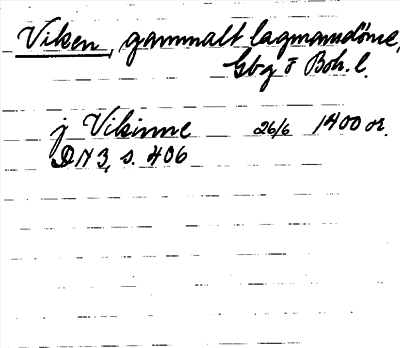 Viken, gammalt lagmansdöme,
Gbg o Boh. l.
j Vikinne 26/6 1400 or.
DN 3, s. 406